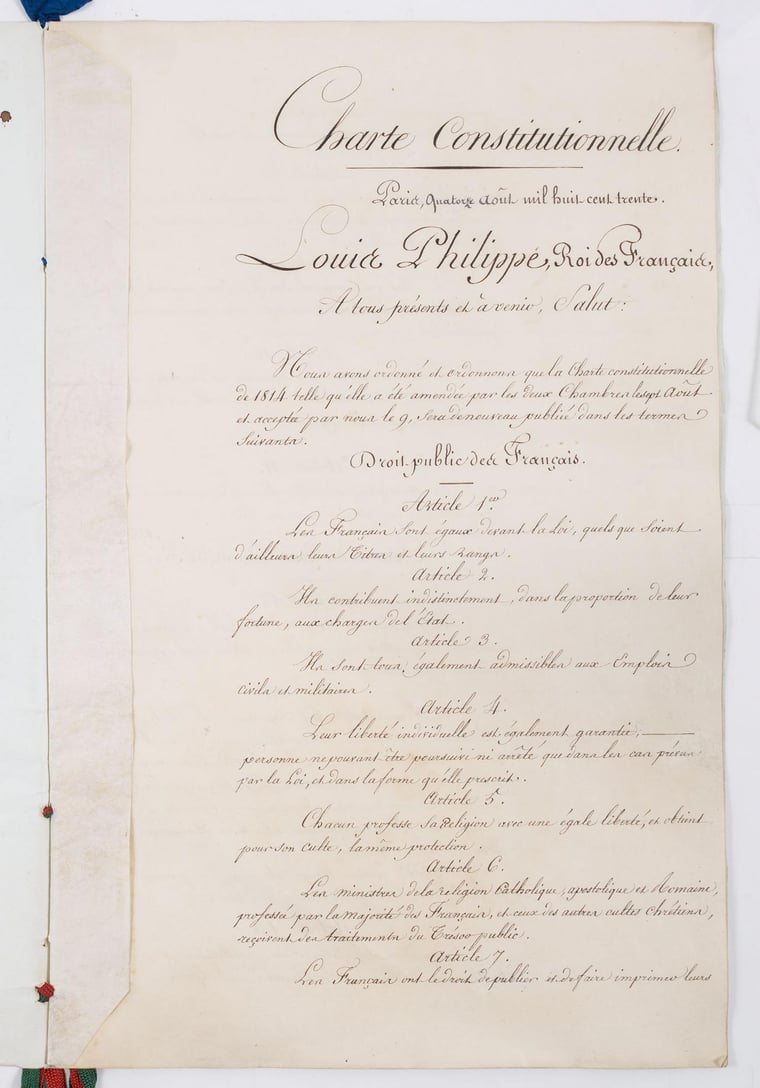 Charte Constitutionnelle.
Paris, Quatorze Août mil huit cent trente.
Louis Philippe, Roi des Français,
A tous présents et à venir, Salut:
Nous avons ordonné et ordonnons que la Charte constitutionnelle
de 1814 telle qu'elle a été amendée par les deux Chambres le sept Août
et acceptée par nous le 9, sera de nouveau publiée dans les termes
suivants.
Droit public des Français.
Article 1er.
Les Français sont égaux devant la Loi, quels que soient
d'ailleurs leurs Titres et leurs Rangs.
Article 2.
Ils contribuent indistinctement, dans la proportion de leur
fortune, aux charges de l'État.
Article 3.
Ils sont tous également admissibles aux Emplois
civils et militaires.
Article 4.
Leur liberté individuelle est également garantie,
personne ne pouvant être poursuivi ni arrêté que dans les cas prévus
par la Loi, et dans la forme qu'elle prescrit.
Article 5.
Chacun professe sa Religion avec une égale liberté, et obtient
pour son culte, la même protection.
Article 6.
Les ministres de la religion Catholique, apostolique et Romaine,
professée par la majorité des Français, et ceux des autres cultes chrétiens,
reçoivent des traitements du Trésor public.
Article 7.
Les Français ont le droit de publier et de faire imprimer leurs